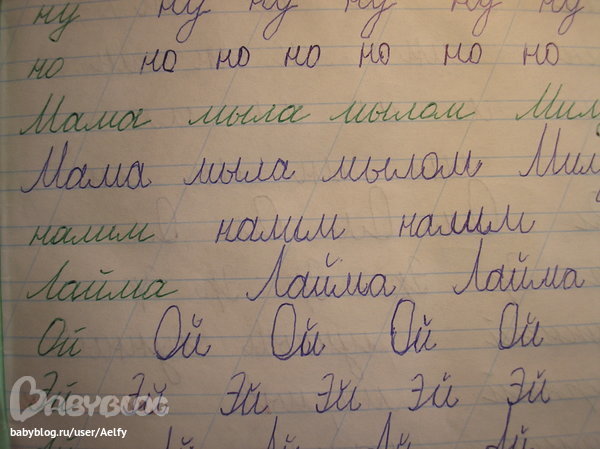 ну ну ну ну ну ну
но но но но но но но
Мама мыла мылом
Мама мыла мылом
налим налим налим
Лайма Лайма Лайма
Ой Ой Ой Ой Ой
Эй Эй Эй Эй Эй Эй
BABYBLOG
babyblog.ru/user/Aelfy